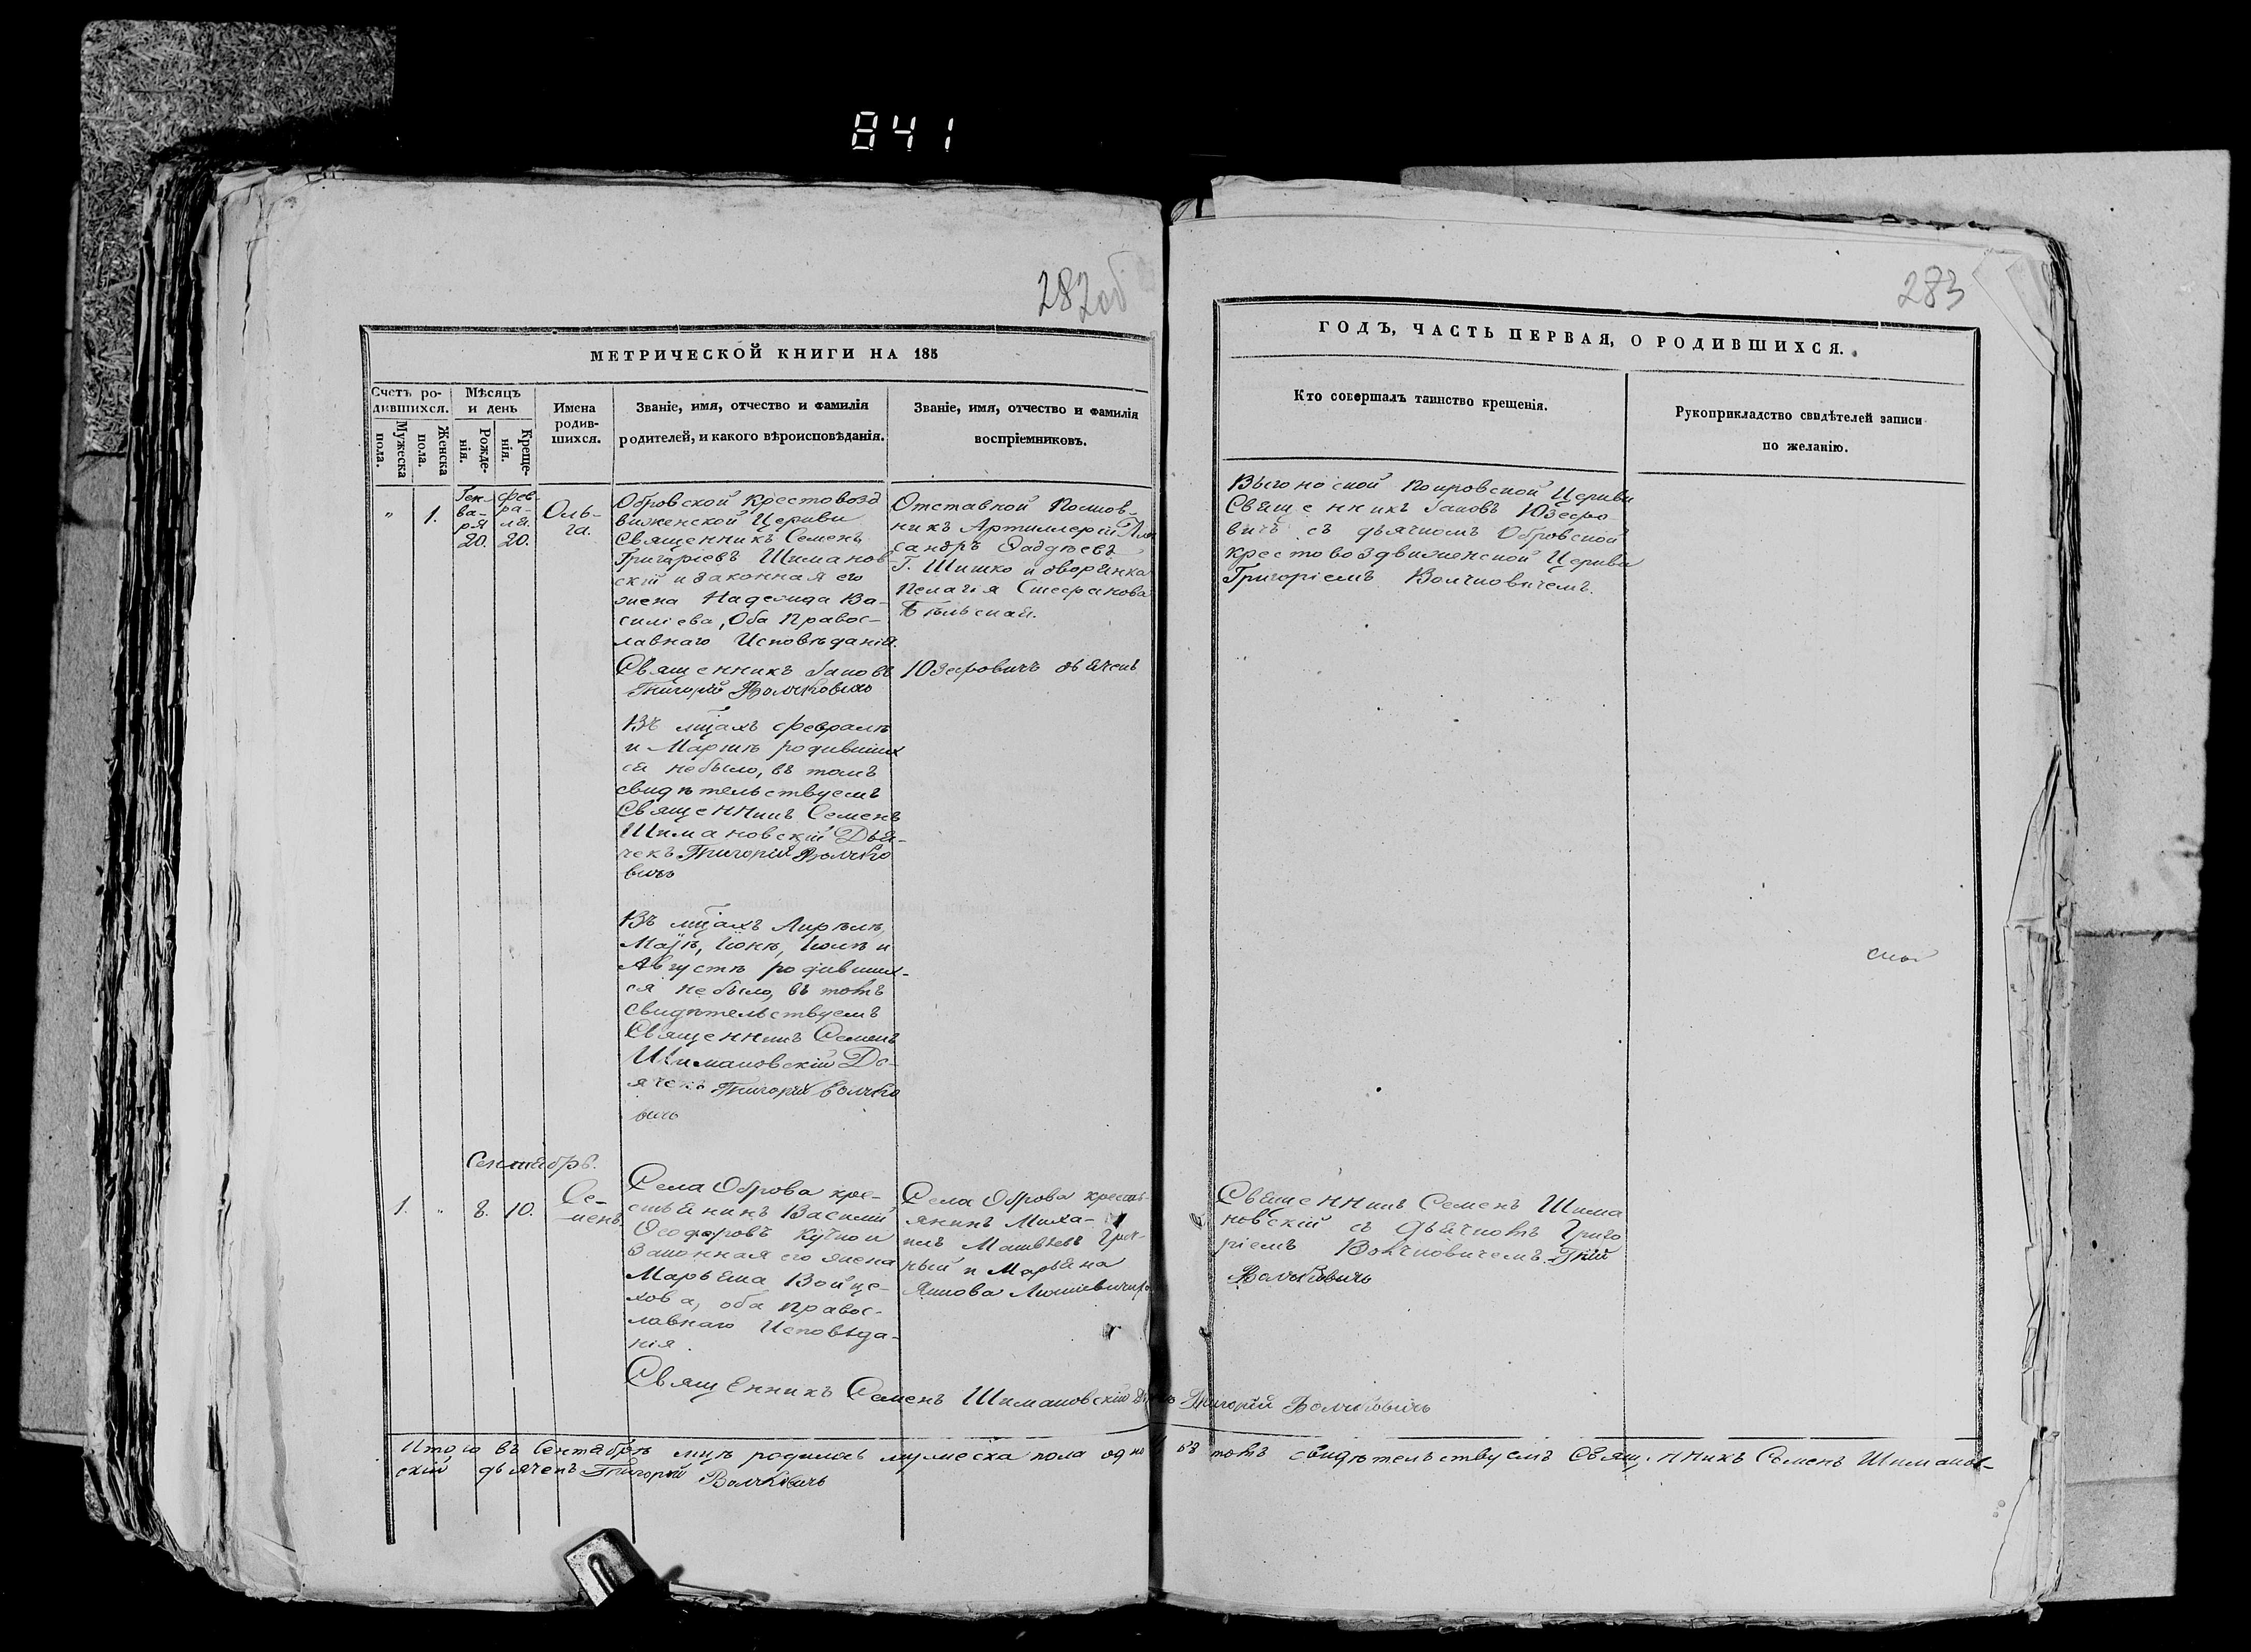 841
282об
283
МЕТРИЧЕСКОЙ КНИГИ НА 185
ГОДЪ, ЧАСТЬ ПЕРВАЯ, О РОДИВШИХСЯ.
Счетъ ро-
дившихся.
Мужеска
пола.
Женска
пола.
Мѣсяцъ
и день
Рожде-
нія.
Креще-
нія.
Имена
родив-
шихся.
Званіе, имя, отчество и фамилія
родителей, и какого вѣроисповѣданія.
Званіе, имя, отчество и фамилія
воспріемниковъ.
Кто совершалъ таинство крещенія.
Рукоприкладство свидѣтелей записи
по желанію.
"
1.
Ген-
ва-
ря
20.
Фев-
ра-
ля.
20.
Оль-
га.
Обровской Крестовозд
виженской Церкви
Священникъ Семенъ
Григорьевъ Шиманов
скій и законная его
жена Надежда Ва-
силіева, Оба Правос-
лавнаго Исповѣданія.
Отставной Полков-
никъ Артиллеріи
сандръ Фаддѣевъ
Г. Шишко и дворянка
Пелагія Стефанова
Бѣльская.
Выгоноской Покровской Церкви
Священникъ Іаковъ Юзефо
вичъ съ дьячкомъ Обровской
Крестовоздвиженской Церкви
Григоріемъ Волчковичемъ.
Священникъ Іаковъ Юзефовичъ дьячекъ
Григорій Волчковичъ
Въ мцахъ Февралѣ
и Мартѣ родивших
ся небыло, въ томъ
свидѣтельствуемъ
Священникъ Семенъ
Шимановскій Дья-
чекъ Григорій Волчко
вичъ
Въ мцахъ Апрѣлѣ,
Маѣ, Іюнѣ, Іюлѣ и
Августѣ родивших-
ся небыло, въ томъ
свидѣтельствуемъ
Священникъ Семенъ
Шимановскій Дь-
ячекъ Григорій Волчко
вичъ
Сентябрь.
1.
"
8.
10.
Се-
менъ
Села Оброва кре-
стьянинъ Василій
Феодоровъ и
Законная его жена
Марьяна Войце-
хова, оба Правос-
лавнаго Исповѣда-
нія.
Села Оброва кресть-
янинъ Миха-
илъ Матвѣевъ
и Марьяна
Якимова
Священникъ Семенъ Шима
новскій съ дьячкомъ Григо
ріемъ Волчковичемъ.
Волчковичъ
Священникъ Семенъ Шимановскій Григорій Волчковичъ
Итого въ Сентябрѣ мцѣ родилось мужеска пола въ томъ свидѣтельствуемъ Священникъ Семенъ Шиманов-
скій дьячекъ Григорій Волчковичъ